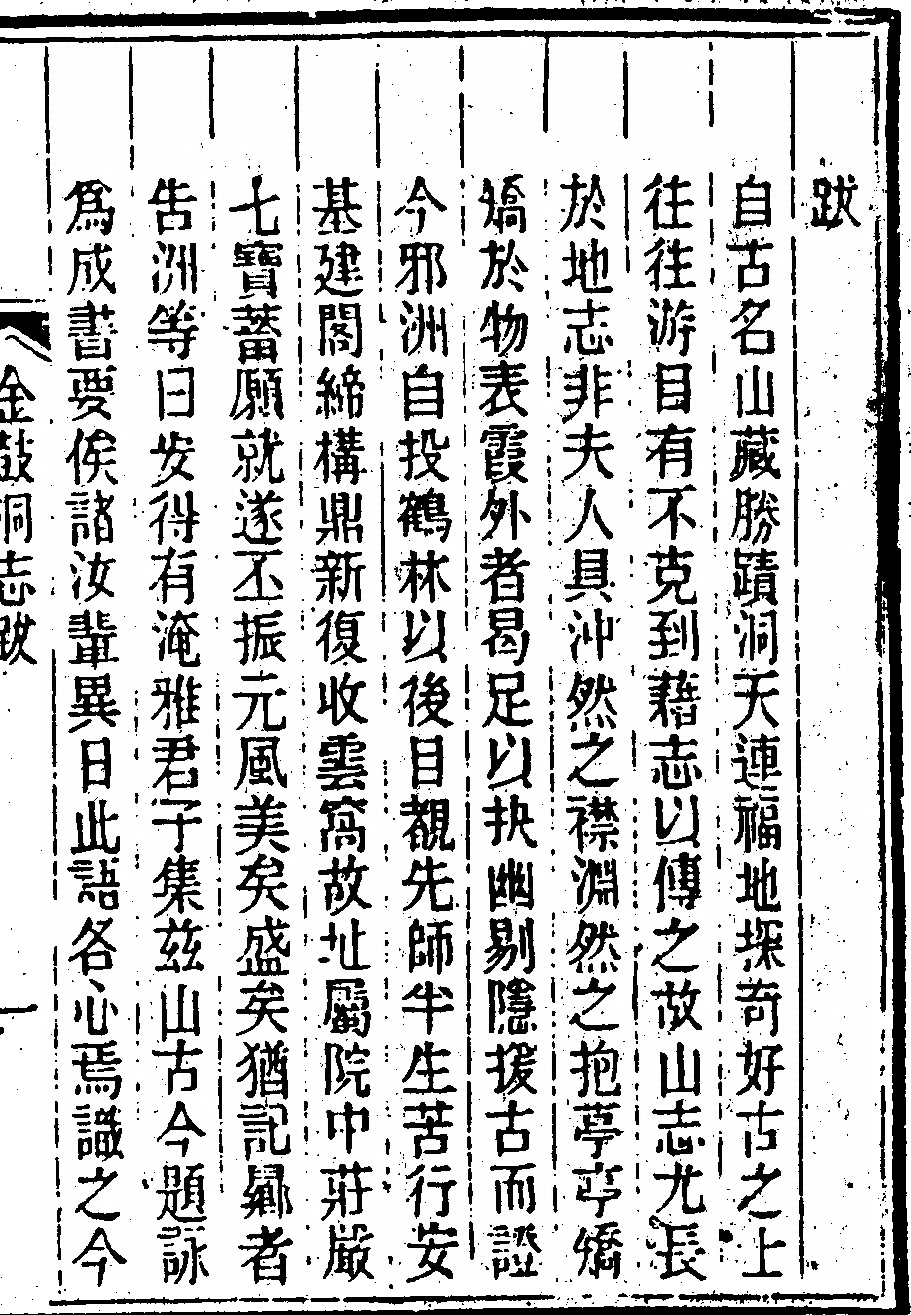 跋
自古名山藏勝蹟洞天連福地探奇好古之上
往往游目有不克到藉志以傳之故山志尤長
於地志非夫人具沖然之襟淵然之抱葶亭矯
矯於物表霞外者曷足以抉幽剔隱援古而證
今邪洲自投鶴林以後目覩先師半生苦行安
基建閣締構鼎新復收雲窩故址屬院中莊嚴
七寶蓄願就遂丕振元風美矣盛矣猶記曏者
告洲等曰安得有淹雅君子集茲山古今題詠
爲成書要俟諸汝輩異日此語各心焉識之今
金鼓洞志跋
一